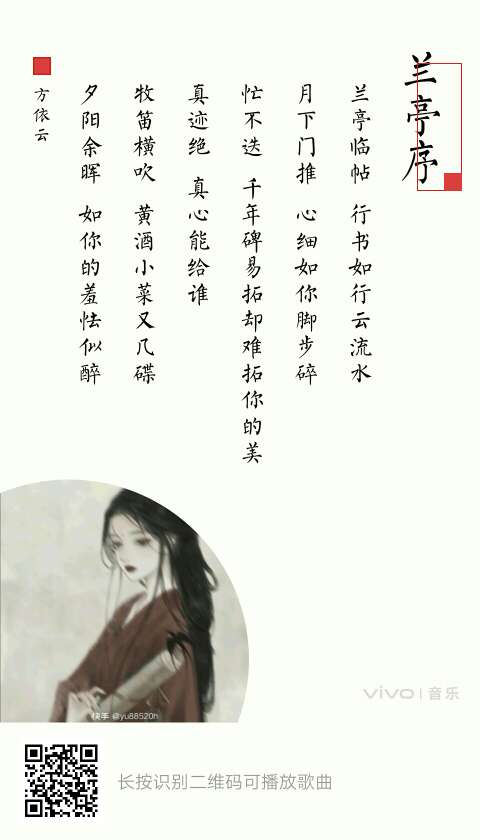 兰亭序
兰亭临帖 行书如行云流水
月下门推 心细如你脚步碎
忙不迭 千年碑易拓却难拓你的美
真迹绝 真心能给谁
牧笛横吹 黄酒小菜又几碟
夕阳余晖 如你的羞怯似醉
方依云
快手 @yu88520h
vivo | 音乐
长按识别二维码可播放歌曲